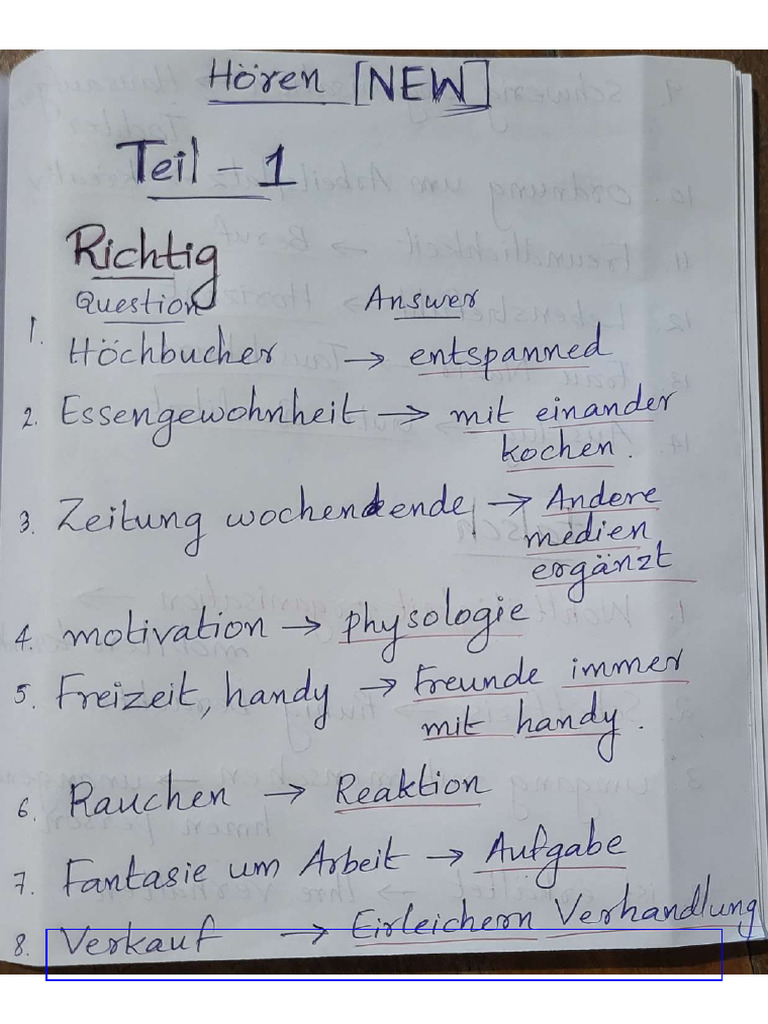 Hören [NEW]
Teil - 1
Richtig
Question Answer
1. Höchbucher → entspanned
2. Essengewohnheit → mit einander
kochen.
3. Zeitung wochendende → Andere
medien
ergänzt
4. motivation → physologie
5. Freizeit, handy → Freunde immer
mit handy.
6. Rauchen → Reaktion
7. Fantasie um Arbeit → Aufgabe
8. Verkauf → Eirleichern Verhandlung